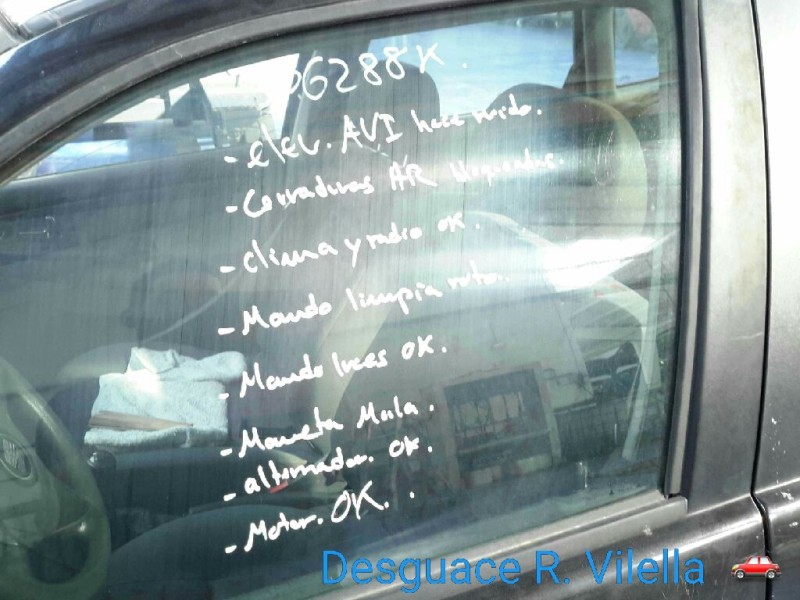 06288K.
- elev. AVI hace ruido.
- Cerraduras AR bloqueadas.
- clima y radio OK.
- Mando limpia roto.
- Mando luces OK.
- Maneta Mala.
- alternador. OK.
- Motor. OK..
Desguace R. Vilella